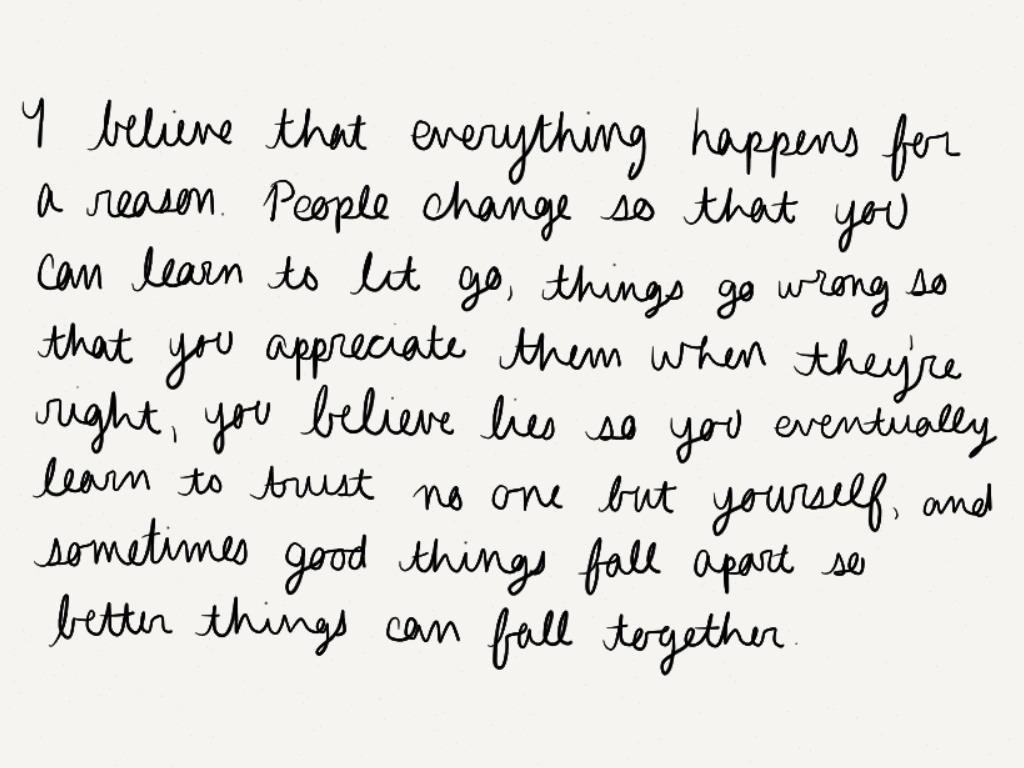 I believe that everything happens for
a reason. People change so that you
can learn to let go, things go wrong so
that you appreciate them when they're
right, you believe lies so you eventually
learn to trust no one but yourself, and
sometimes good things fall apart so
better things can fall together.